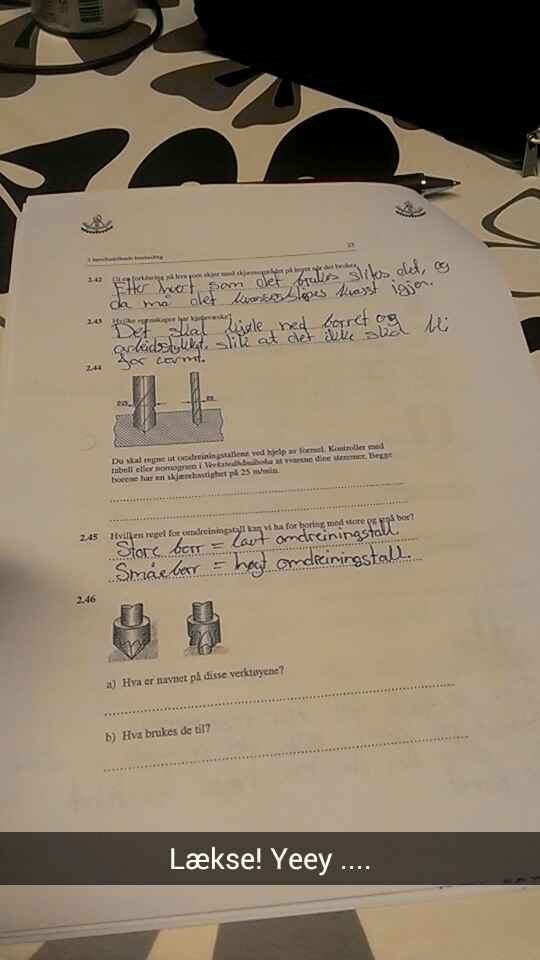 23
2.42 på
Etter hvert som det brukes slites det, og
da må det kvasst igjen.
2.43 Hvilke egenskaper har kjølevæske?
Det skal kjøle ned borret og
arbeidstykket, slik at det ikke skal bli
for varmt.
2.44
Du skal regne ut omdreiningstallene ved hjelp av formel. Kontroller med
tabell eller nomogram i Verkstedhåndboka at svarene dine stemmer. Begge
borene har en skjærehastighet på 25 m/min.
2.45 Hvilken regel for omdreiningstall kan vi ha for boring med store og små bor?
Store borr = lavt omdreiningstall.
Små borr = høyt omdreiningstall.
2.46
a) Hva er navnet på disse verktøyene?
b) Hva brukes de til?
Lækse! Yeey ....